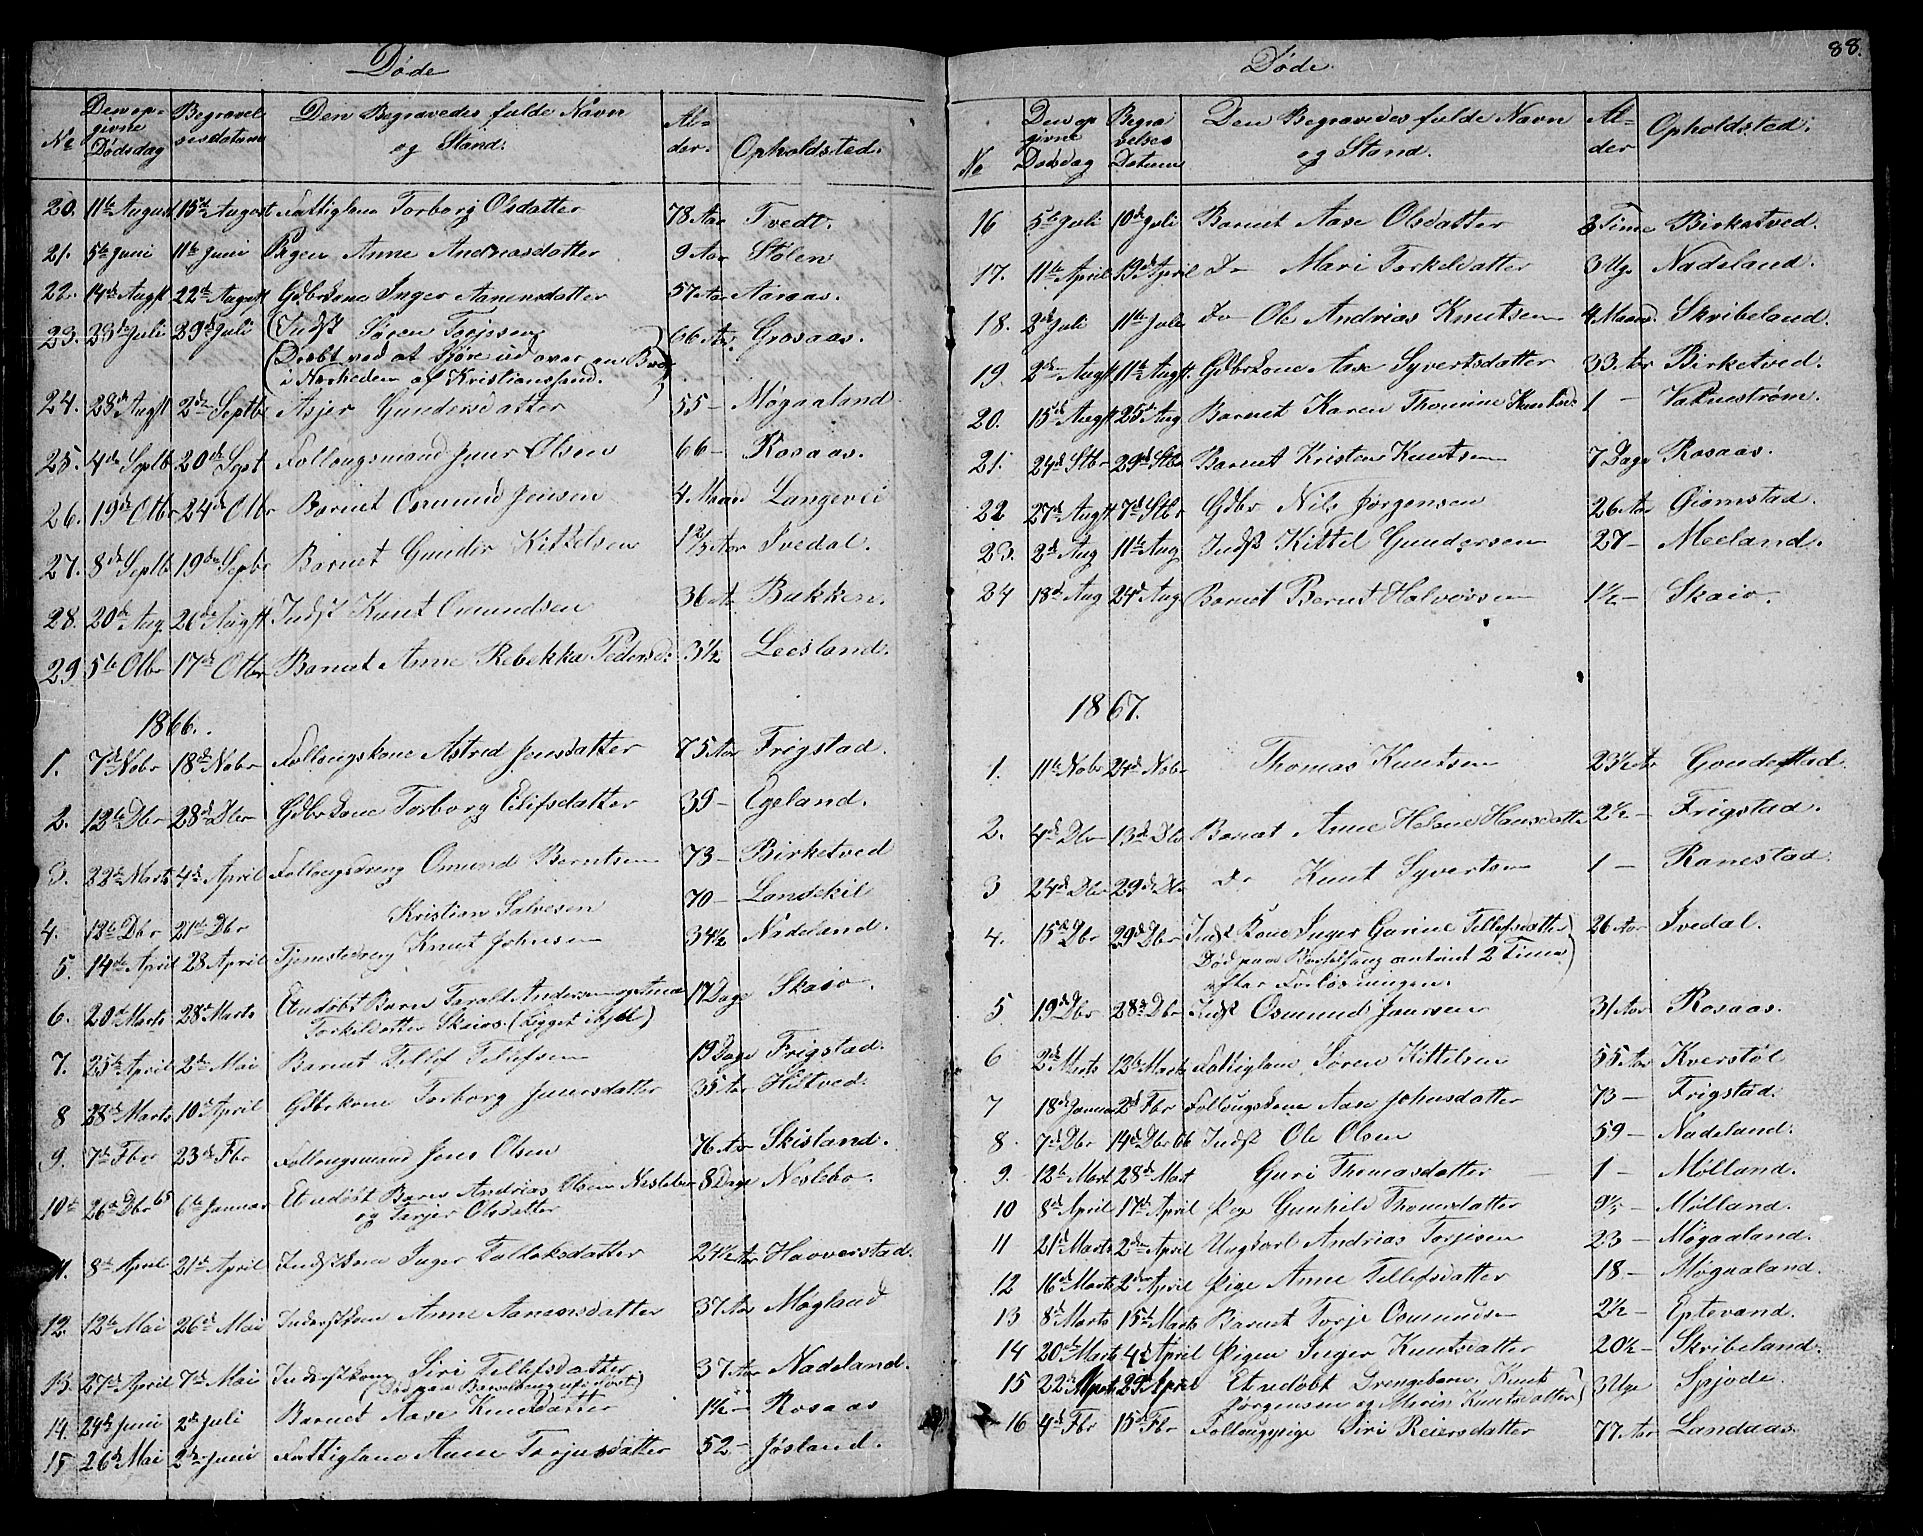 Døde
No Den opgivne Dødsdag Begravelsesdatum Den Begravedes fulde Navn og Stand. Alder. Opholdsted.
20. 11te August 15de August Fattiglem Torborg Olsdatter 78 Aar Tvedt.
21. 5te Juni 11te Juni Pigen Anne Andreasdatter 9 Aar Stølen
22. 14de Augst 22de August Gdbrkone Inger Aanensdatter 57 Aar Aaraas.
23. 23de Juli 29de Juli (Indst Søren Terjesen 66 Ar. Grosaas.
(Dræbt ved at kjøre ud over en Bro
i Nærheden af Kristianssand.)
24. 23de Augst 2den Septbr Asjer Gundersdatter 55 – Møgaaland
25. 4de Septb 20de Sept Follougsmand Jens Olsen 66 – Rosaas.
26. 19de Otbr 24de Otbr Barnet Osmund Jensen 4 Maan Langevei
27. 8de Septb 19de Sepbr Barnet Gunder Kittelsen 1 1/2 Aar Ivedal.
28. 20de Aug. 26de Augst Indst Knut Omundsen 36 Ar. Bakken.
29 5te Otbr 17de Otbr Barnet Anne Rebekka Pedersd: 3 1/2 Leesland.
1866.
1. 7de Nobr 18de Nobr Follougskone Astrid Jensdatter 75 Aar Frigstad.
2. 12te Dbr 28de Dbr Gdbrkone Torborg Eilifsdatter 39 – Egeland.
3. 22de Marts 4de April Follougsdreng Omund Berntsen 73 – Birketved
4. 12te Dbr 21de Dbr Kristian Salvesen 70 – Landskil
5. 14de April 28 April Tjenstedreng Knut Johnsen 34 1/2 Nadeland.
6. 20de Marts 28de Marts Et udøbt Barn Taralt Andersen og Anne 17 Dage Skaio.
Torkildatter Skaiaa. (Ligget ihjel)
7. 25de April 2de Mai Barnet Tellef Tellefsen 19 Dage Frigstad.
8 28de Marts 10de April Gdbrkone Torborg Jensdatter 35 Aar Histved.
9. 7de Fbr 23de Fbr Follougsmand Jens Olsen 76 Aar Skisland.
10de 26de Dbr 65 6te Januar Et udøbt Barn Andreas Olsen Neslebo 8 Dage Neslebo.
og Tarjer Olsdatter
11. 8de April 21de April Indstkone Inger Tallaksdatter 24 1/2 Ar Haaverstad.
12. 12te Mai 26de Mai Inderstkone Anne Aanensdatter 37 Aar Møgland
13. 27de April 7de Mai Inderstkone Siri Tellefsdatter 37 Aar Nadeland.
(Død paa Barselseng uforløst)
14. 24de Juni 2de Juli Barnet Aase Knutsdatter 1 1/2 – Rosaas
15 26de Mai 2den Juni Fattiglem Anne Torjusdatter 52 – Jøsland.
88.
Døde.
No Den opgivne Dødsdag Begravelses Datum Den Begravedes fulde Navn og Stand. Alder Opholdsted.
16 5te Juli 10de Juli Barnet Aase Olsdatter 3 Time Birketved.
17. 11te April 19de April Do Mari Torkelsdatter 3 Uge Nadeland.
18. 2de Juli 11te Juli Do Ole Andrias Knutsen 4 Maand. Skribeland.
19. 2den Augst 11te Augst. Gdbrkone Aase Syvertsdatter 33 Ar Birketved.
20. 15de Augst 25de Aug Barnet Karen Thomine Knutsd: 1 – Vatnestrøm.
21. 24de Stbr 29de Stbr Barnet Kristen Knutsen 7 Dage Rosaas.
22 27de Augst 7de Stbr Gdbr Nils Jørgensen 26 Aar Oiomstad.
23. 2de Aug 11te Aug Indst Kittel Gundersen 27 – Meeland.
24 18de Aug 24de Aug Barnet Bernt Halvorsen 1 1/2 – Skaio.
1867.
1. 11te Nobr 24de Nobr Thomas Knutsen 23 1/2 Ar Gondestad
2. 4de Dbr 13de Dbr Barnet Anne Helene Hansdatte 2 1/2 – Frigstad.
3 24de Dbr 29de Dbr Do Knut Syvertsen 1 – Ranestad
4. 15de Dbr 29de Dbr Indst Kone Inger Gurine Tellefsdatter 26 Aar Ivedal.
Død paa Barselseng omtrent 2 Timer)
efter Forløsningen.
5 19de Dbr 28de Dbr Indst Osmund Jensen 31 Aar Rosaas.
6 2de Marts 12te Marts Fattiglem Søren Kittelsen 55 Aar Kverstøl
7 18de Januar 2de Fbr Follougskone Aase Johnsdatter 73 – Frigstad.
8. 7de Dbr 14de Dbr 66 Indst Ole Olsen 59 – Nadeland.
9. 12te Mart 28de Mart Guri Thomasdatter 1 – Mølland.
10 8de April 17de April Pige Gunhild Thomasdatter 9 1/2 – Mølland.
11 21de Marts 2den April Ungkarl Andrias Terjesen 23 – Møgaaland.
12 16de Marts 2den April Pige Anne Tellefsdatter 18 – Møgaaland.
13 8de Marts 15de Marts Barnet Torje Osmundsen 2 1/2 – Eptevand.
14 20de Marts 4de April Pigen Inger Knutsdatter 20 1/2 – Skribeland.
15 22de April 29de April Et udøbt Drengebarn Knut 3 Uge Spjode.
Jørgensen og Maria Knutsdatter)
16 4de Fbr 15de Fbr Follougspige Siri Reiersdatter 77 Aar Landaas.